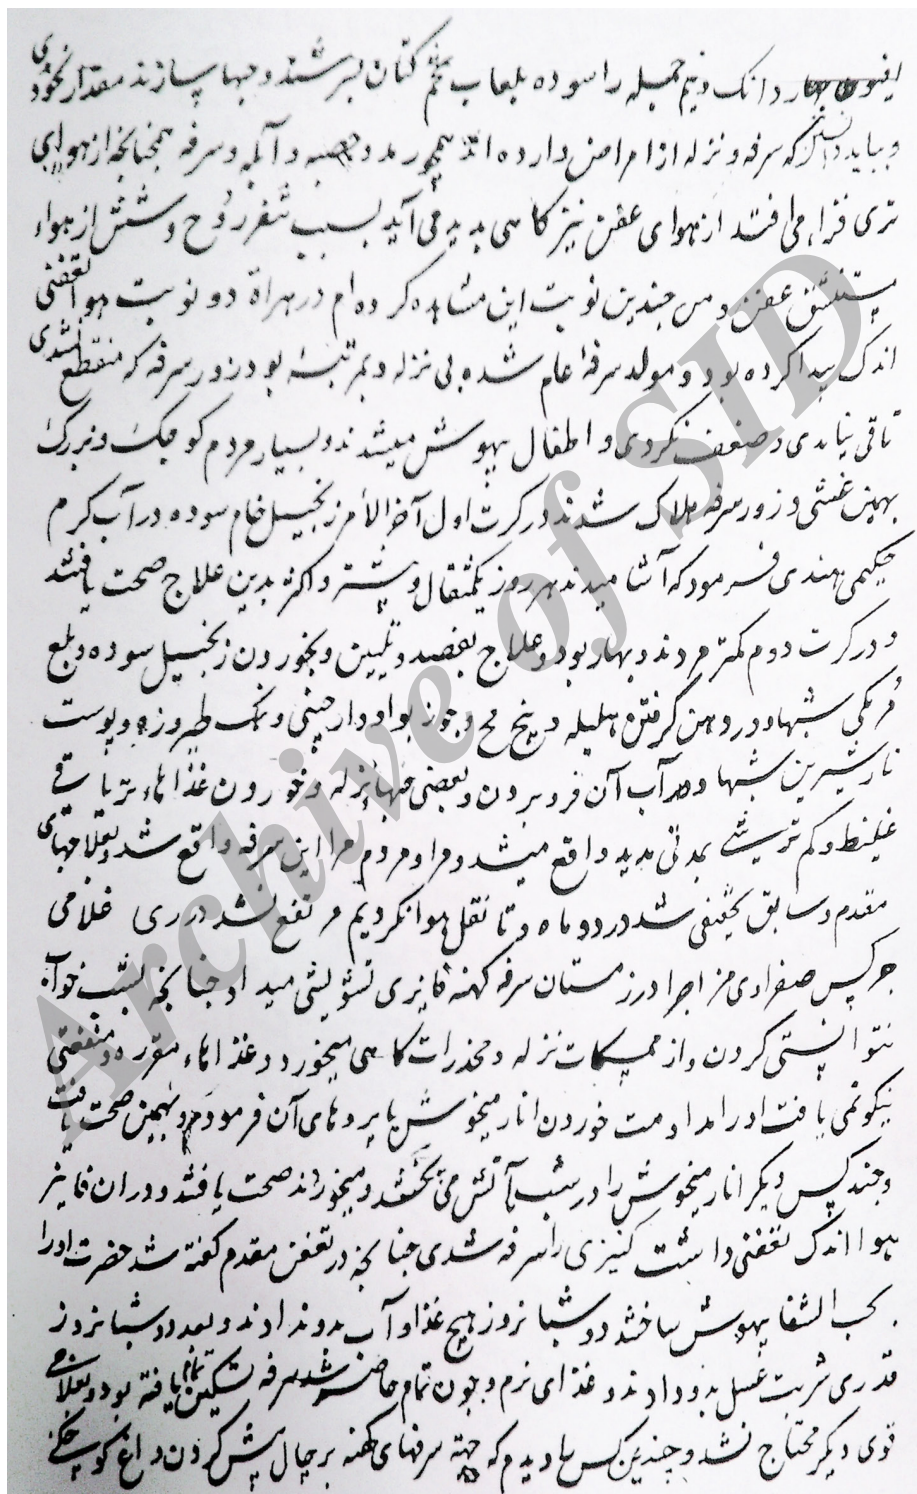 افیون چهار دانک و نیم جمله را سوده بلعاب تخم کتان بسرشند و حبها سازند مقدار نخودی
و بباید دانست که سرفه و نزله از امراض وارده اند همچو رمد و حصبه و آبله و سرفه همچنانچه از هوای
تری فزاء می افتد از هوای عفن نیز کاهی پدید می آید بسبب تنفر روح و شش از هواء
مستنشق عفن و من چندین نوبت این مشاهده کرده ام در هراة دو نوبت هوا تعفنی
اندک پیدا کرده بود و مولد سرفه عام شده بی نزله و بمرتبهٔ بود زور سرفه که منقطع نشدی
تا قی نیامدی و ضعف نکردی و اطفال بیهوش میشدند و بسیار مردم کوچک و بزرک
بهمین غشی و زور سرفه هلاک شدند در کرت اول آخر الامر زنجبیل خام سوده در آب کرم
حکیمی هندی فرمود که آشامیدند هر روز یکمثقال و بیشتر و اکثر بدین علاج صحت یافتند
و در کرت دوم کمتر مردند و بهار بود و علاج بفصد و تلیین و بخوردن زنجبیل سوده و بلع
مُر مکی شبها و در دهن کرفتن هلیله و بیخ مج و جوز بوا و دارچینی و نمک طبرزد و پوست
نار شیرین شبها و آب آن فرو بردن و بعضی حبهاء نزله و خوردن غذاهاء تریاقی
غلیظ و کم ترشی بمدتی مدید واقع میشد و مرا و مردم مرا این سرفه واقع شد و بعلاجهای
مقدم و سابق تخفیفی شد در دو ماه و تا نقل هوا نکردیم مرتفع نشد در ری غلامی
جرکس صفراوی مزاج را در زمستان سرفه کهنه فایزی تشویشی میداد چنانچه بشب خواب
نتوانستی کردن و از ممسکات نزله و مخدرات کاهی میخورد و غذاهاء مقرره و منفعتی
نیکو نمی یافت او را مداومت خوردن انار میخوش با پردهای آن فرمودم و بهمین صحت یافت
و چند کس دیکر انار میخوش را در شب بآتش می نختند و میخوراند صحت یافتند و در ان فایز
هوا اندک تعفنی داشت کنیزی را سرفه شدی چنانچه در تعفن مقدم کفته شد حضرت او را
بحب الشفا بیهوش ساختند و دو شبانروز هیچ غذا و آب بدو ندادند و بعد دو شبانروز
قدری شربت عسل بدو دادند و غذای نرم و چون تمام حاضر شد سرفه تسکین تمام یافته بود و بعلاجی
قوی دیکر محتاج نشد و چندین کس را دیدم که جهة سرفهای کهنه بر چال پیش کردن داغ کوچک